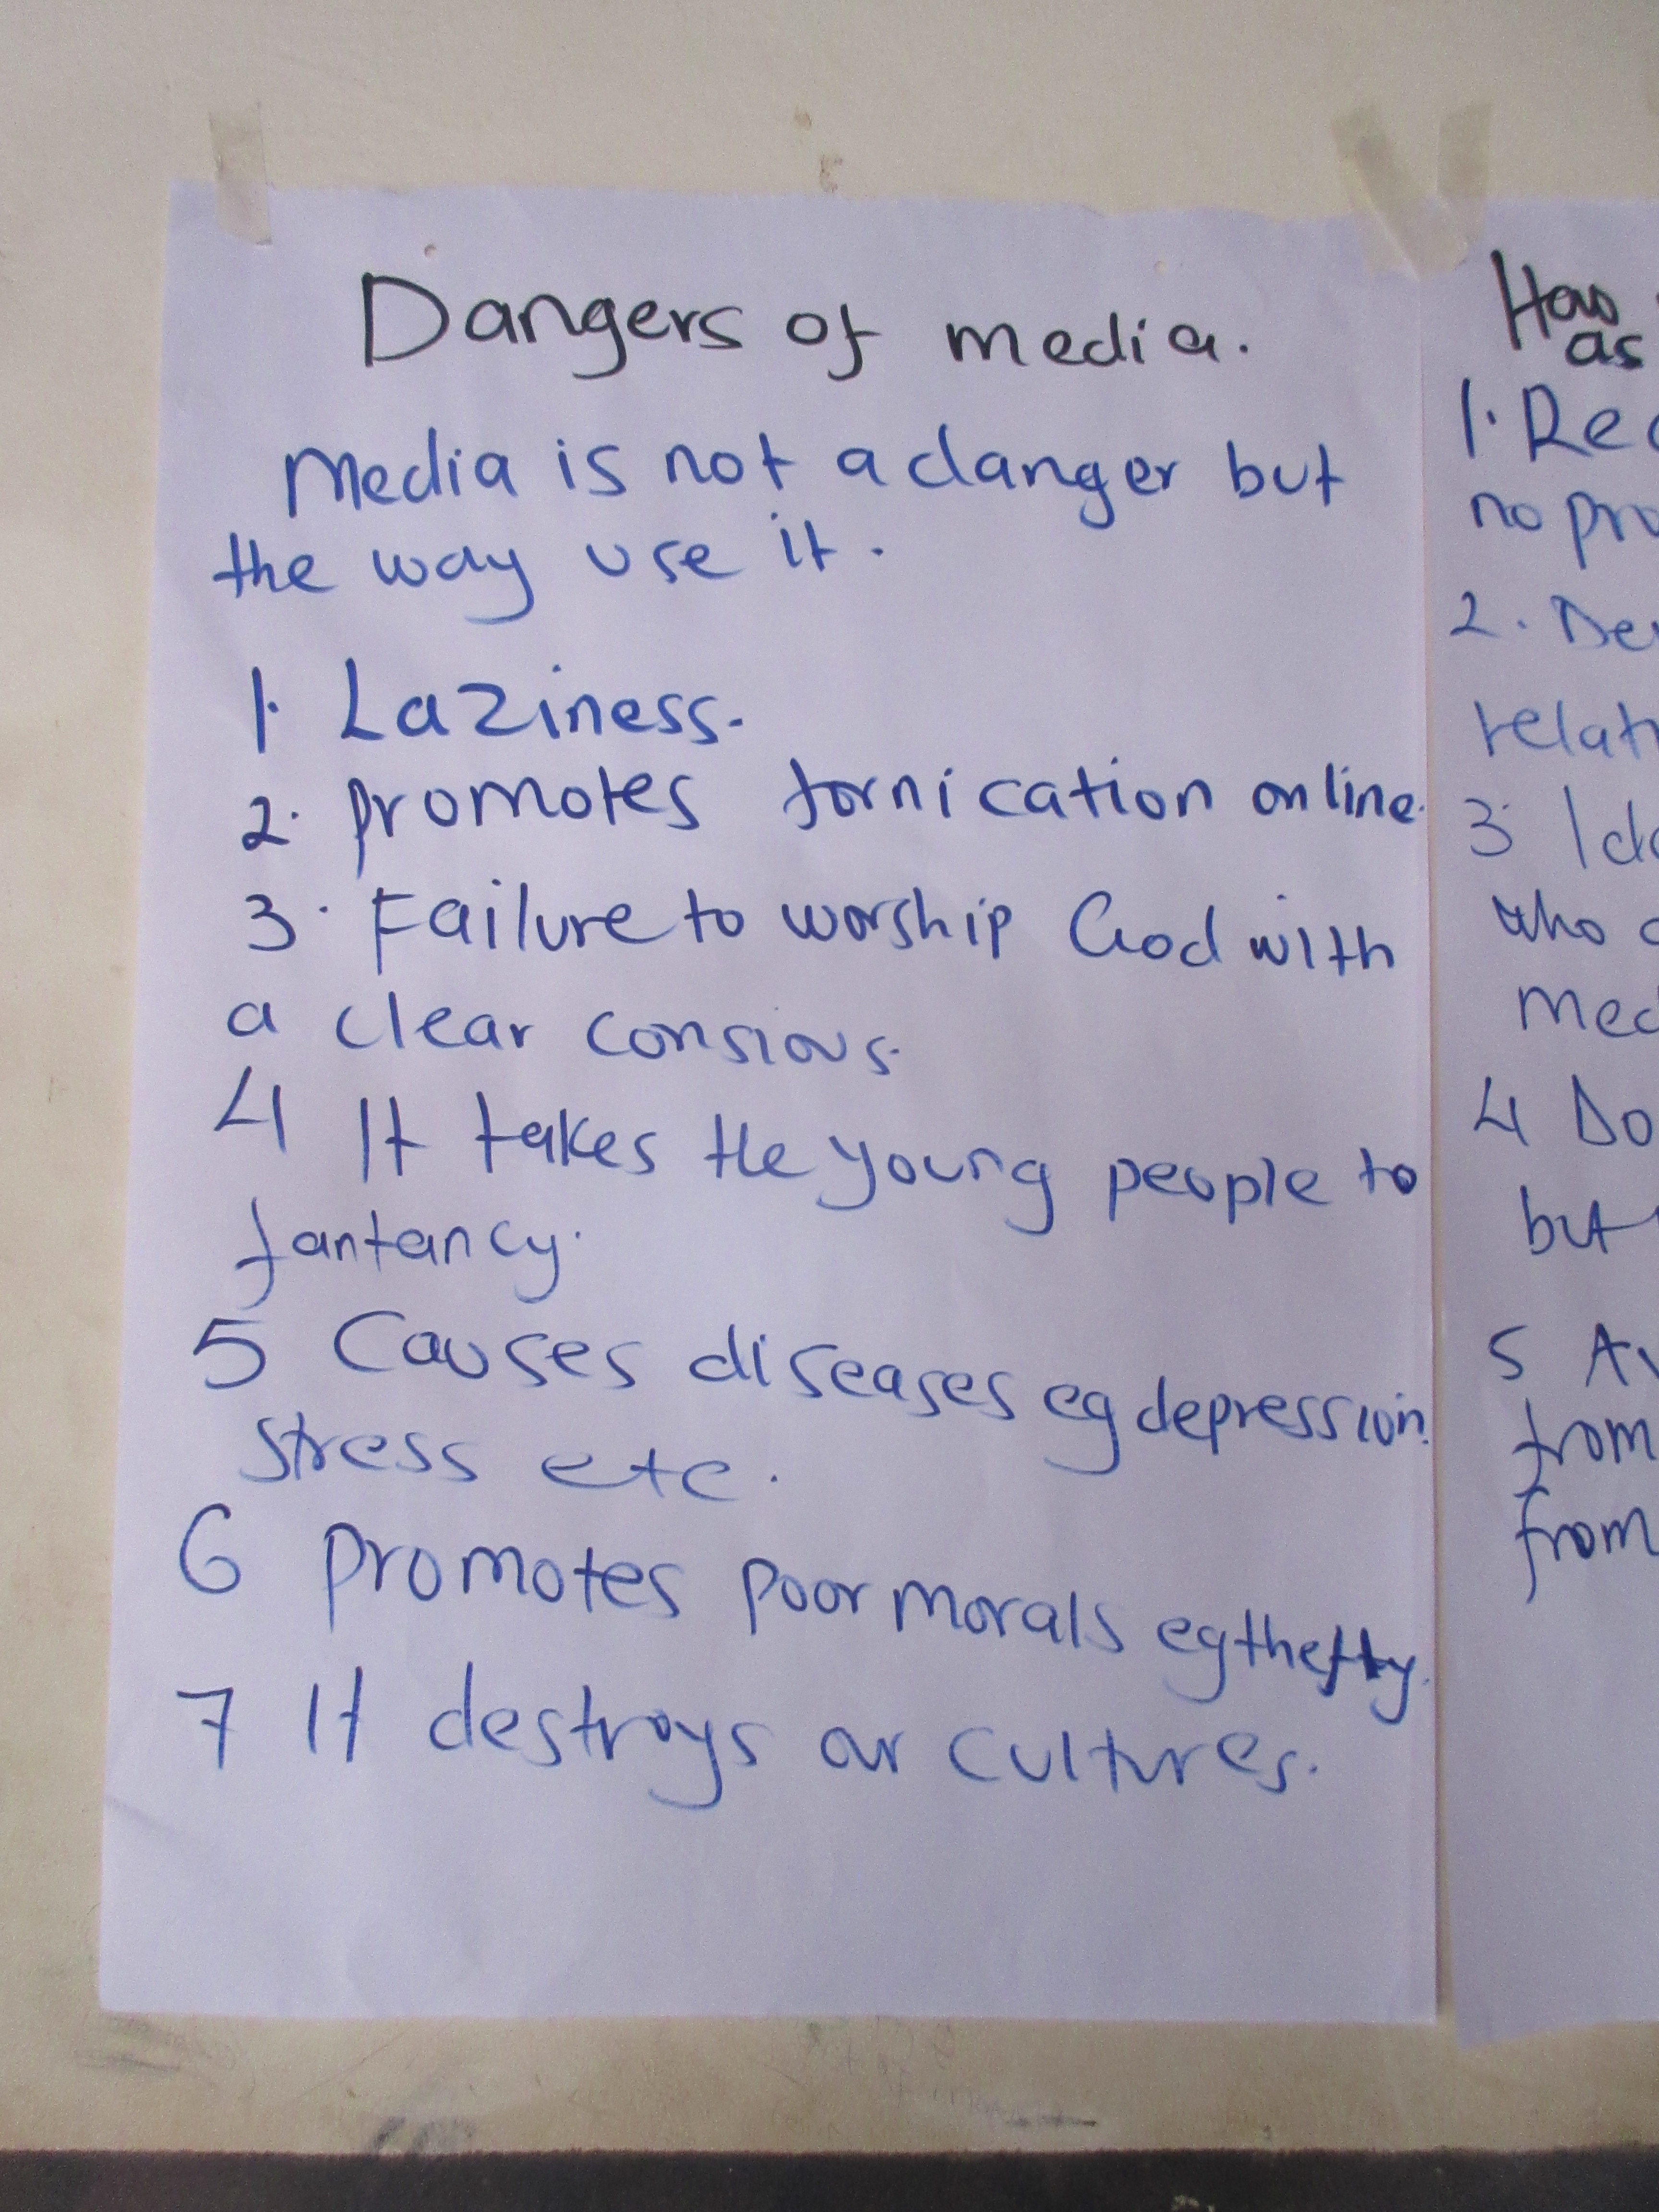 Dangers of media.
Media is not a danger but
the way use it.
1. Laziness.
2. promotes fornication online.
3. Failure to worship God with
a clear consious.
4 It takes the young people to
fantancy.
5 Causes diseases eg depression,
stress etc.
6 promotes poor morals eg thefty.
7 It destroys our cultures.
How
as
1. Rec
no pro
2. Dev
relati
3. Ide
who
Med
4 Do
but
5 Av
from
from